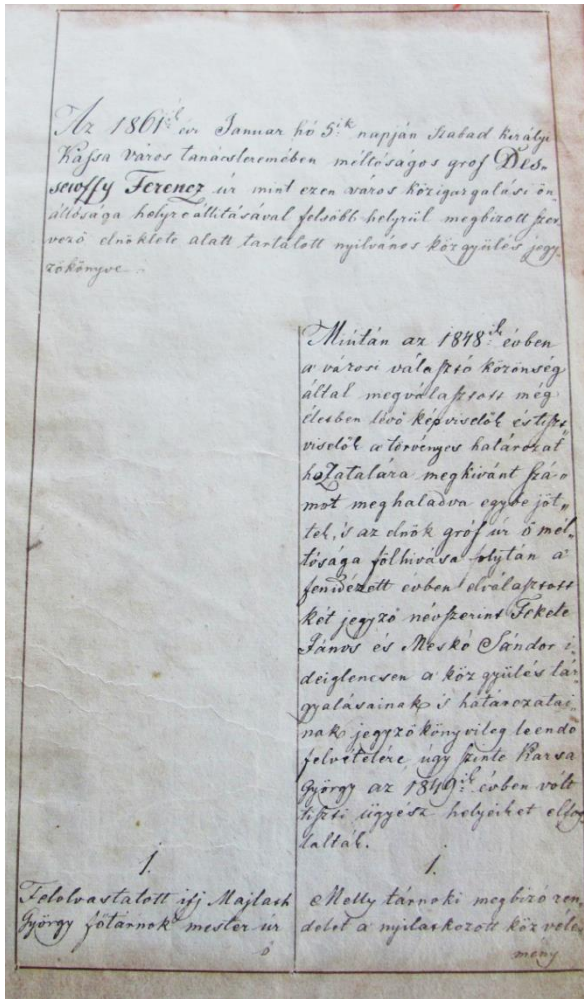 Az 1861ik évi Januar hó 5ik napján Szabad királyi
Kassa város tanácstermében méltóságos gróf Des„
sewffy Ferencz úr mint ezen város közigazgatási ön„
állósága helyreállításával felsőbb helyrül megbizott szer„
vező elnöklete alatt tartatott nyilvános közgyülés jegy„
zőkönyve.
Miután az 1848ik évben
a városi választó közönség
által megválasztott még
életben lévő képviselők és tiszt„
viselők a törvényes határozat
hozatalára megkivánt szá„
mot meghaladva egybe jöt„
tek, 's az elnök gróf úr ő mél„
tósága fölhivása folytán a
fenidézett évben elválasztott
két jegyző névszerint Fekete
János és Meskó Sándor i„
deiglenesen a közgyülés tár„
gyalásainak 's határozatai„
nak jegyzőkönyvileg leendő
felvételére, úgy szinte Karsa
György az 1849ik évben vólt
tiszti ügyész helyeiket elfog„
lalták.
1.
Felolvastatott ifj Majlath
György főtárnok mester úr
ő
1.
Melly tárnoki megbizó ren„
delet a nyilatkozott köz véle„
mény